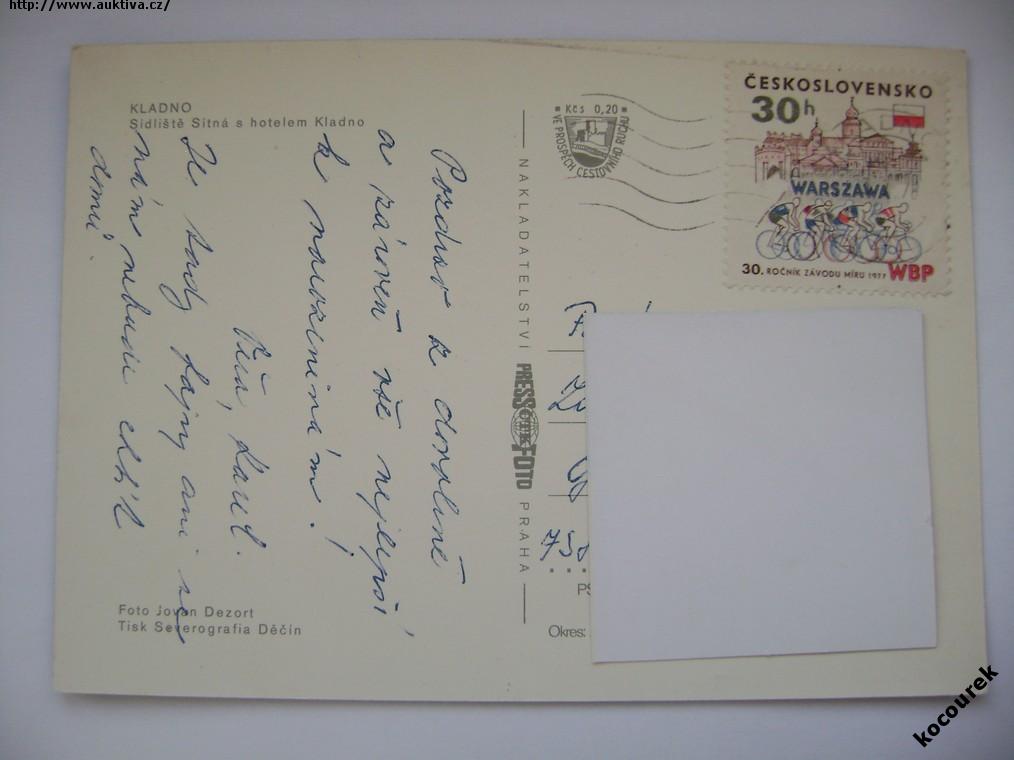 http://www.auktiva.cz/
KLADNO
Sídliště Sítná s hotelem Kladno
Pozdrav z dovolené
a zároveň vše nejlepší
k narozeninám!
Věra, Karel.
Je tady fajn, ani se
nám nebude chtít
domů
Foto Jovan Dezort
Tisk Severografia Děčín
NAKLADATELSTVÍ PRESSFOTO PRAHA
ČTK
Kčs 0,20
VE PROSPĚCH CESTOVNÍHO RUCHU
ČESKOSLOVENSKO
30h
WARSZAWA
30. ROČNÍK ZÁVODU MÍRU 1977 WBP
Okres:
kocourek